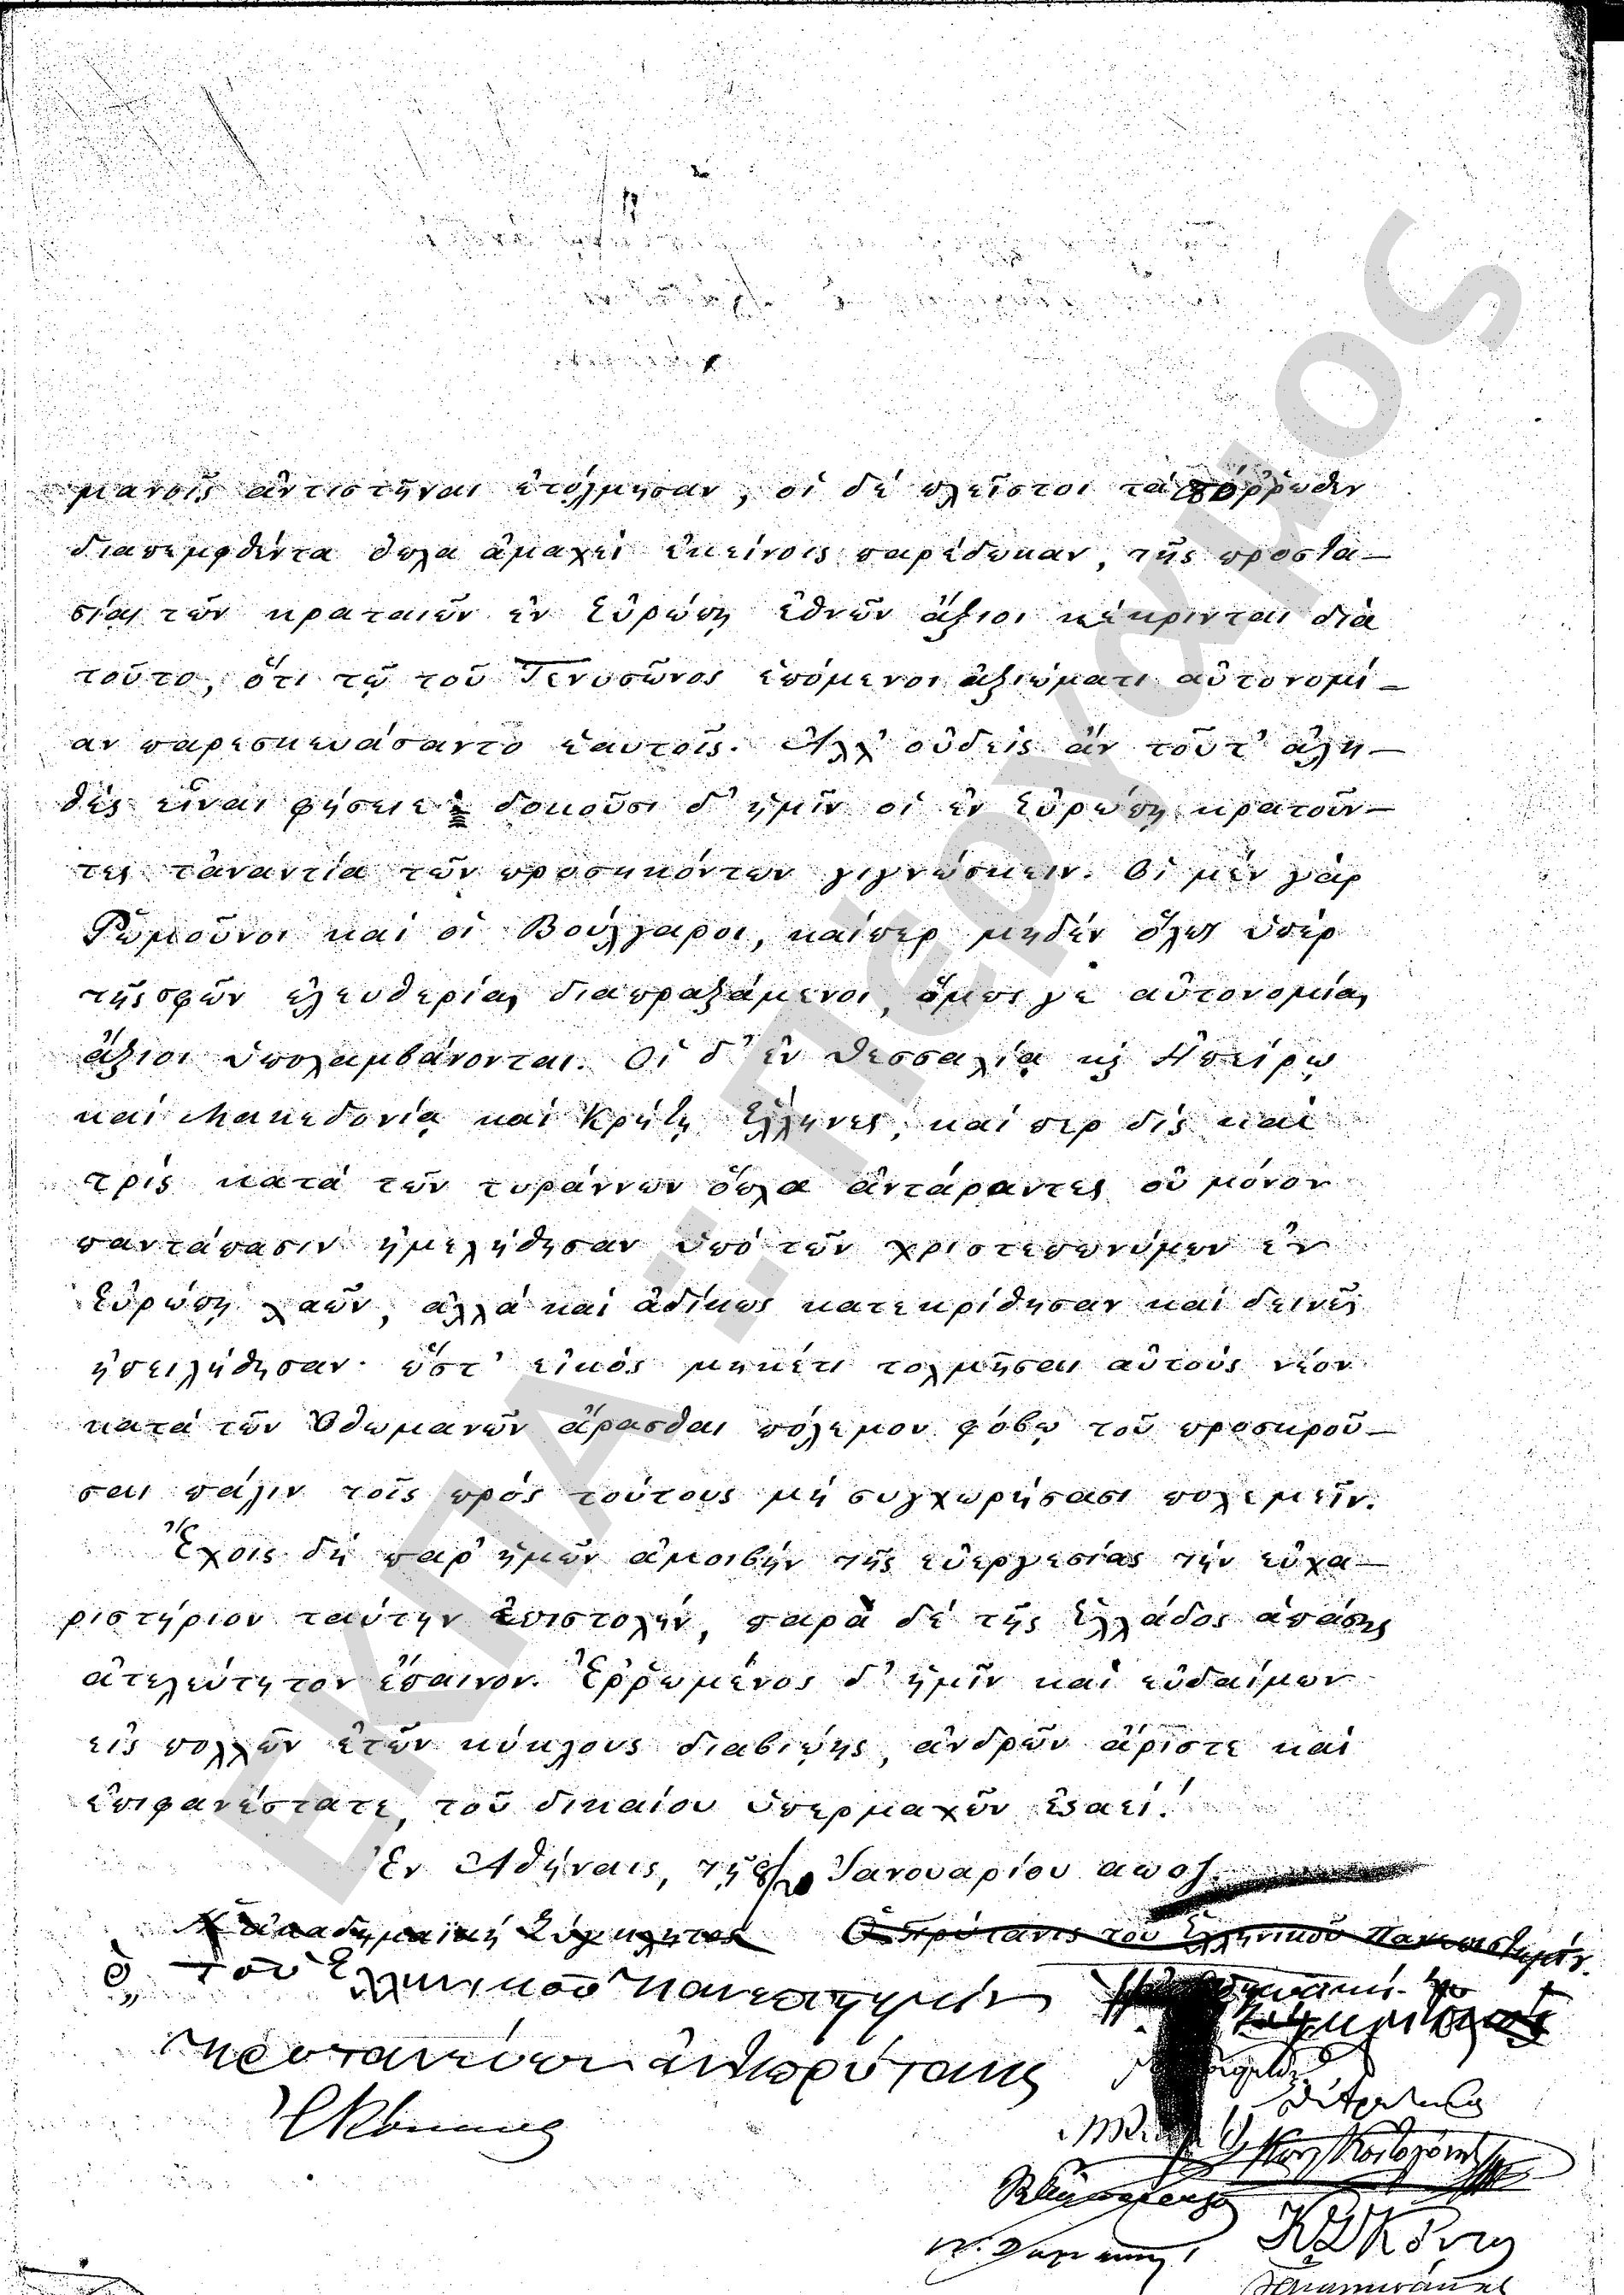 μανοῖς ἀντιστῆναι ἐτόλμησαν, οἱ δὲ πλεῖστοι τὰ πόρρωθεν
διαπεμφθέντα ὅπλα ἀμαχεὶ ἐκείνοις παρέδωκαν, τῆς προστα—
σίας τῶν κραταιῶν ἐν Εὐρώπῃ ἐθνῶν ἄξιοι κέκρινται διὰ
τοῦτο, ὅτι τῷ τοῦ Γεννσῶνος ἑπόμενοι ἀξιώματι αὐτονομί—
αν παρεσκευάσαντο ἑαυτοῖς. Ἀλλ' οὐδεὶς ἂν τοῦτ' ἀλη—
θὲς εἶναι φήσειε· δοκοῦσι δ' ἡμῖν οἱ ἐν Εὐρώπῃ κρατοῦν—
τες τἀναντία τῶν προσηκόντων γιγνώσκειν. Οἱ μὲν γὰρ
Ῥωμοῦνοι καὶ οἱ Βούλγαροι, καίπερ μηδὲν ὅλως ὑπὲρ
τῆς σφῶν ἐλευθερίας διαπραξάμενοι, ὅμως γε αὐτονομίας
ἄξιοι ὑπολαμβάνονται. Οἱ δ' ἐν Θεσσαλίᾳ κ̀ Ἠπείρῳ
καὶ Μακεδονίᾳ καὶ Κρήτῃ Ἕλληνες, καίπερ δὶς καὶ
τρὶς κατὰ τῶν τυράννων ὅπλα ἀντάραντες οὐ μόνον
παντάπασιν ἠμελήθησαν ὑπὸ τῶν χριστεπωνύμων ἐν
Εὐρώπῃ λαῶν, ἀλλὰ καὶ ἀδίκως κατεκρίθησαν καὶ δεινῶς
ἠπειλήθησαν· ὥστ' εἰκὸς μηκέτι τολμῆσαι αὐτοὺς νέον
κατὰ τῶν Ὀθωμανῶν ἄρασθαι πόλεμον φόβῳ τοῦ προσκροῦ—
σαι πάλιν τοῖς πρὸς τούτους μὴ συγχωρήσασι πολεμεῖν.
Ἔχοις δὴ παρ' ἡμῶν ἀμοιβὴν τῆς εὐεργεσίας τὴν εὐχα—
ριστήριον ταύτην ἐπιστολήν, παρὰ δὲ τῆς Ἑλλάδος ἁπάσης
ἀτελεύτητον ἔπαινον. Ἐῤῥωμένος δ' ἡμῖν καὶ εὐδαίμων
εἰς πολλῶν ἐτῶν κύκλους διαβιῴης, ἀνδρῶν ἄριστε καὶ
ἐπιφανέστατε, τοῦ δικαίου ὑπερμαχῶν ἐσαεί!
Ἐν Ἀθήναις, τῇ 8/20 Ἰανουαρίου αωοζ.
Ἡ ἀκαδημαϊκὴ Σύγκλητος Ὁ Πρύτανις τοῦ Ἑλληνικοῦ Πανεπιστημίου.
Ὁ τοῦ Ἑλληνικοῦ Πανεπιστημίου
πρυτανεύων ἀντιπρύτανις
ΕΚΠΑ - ΠΕΡΓΑΜΟΣ